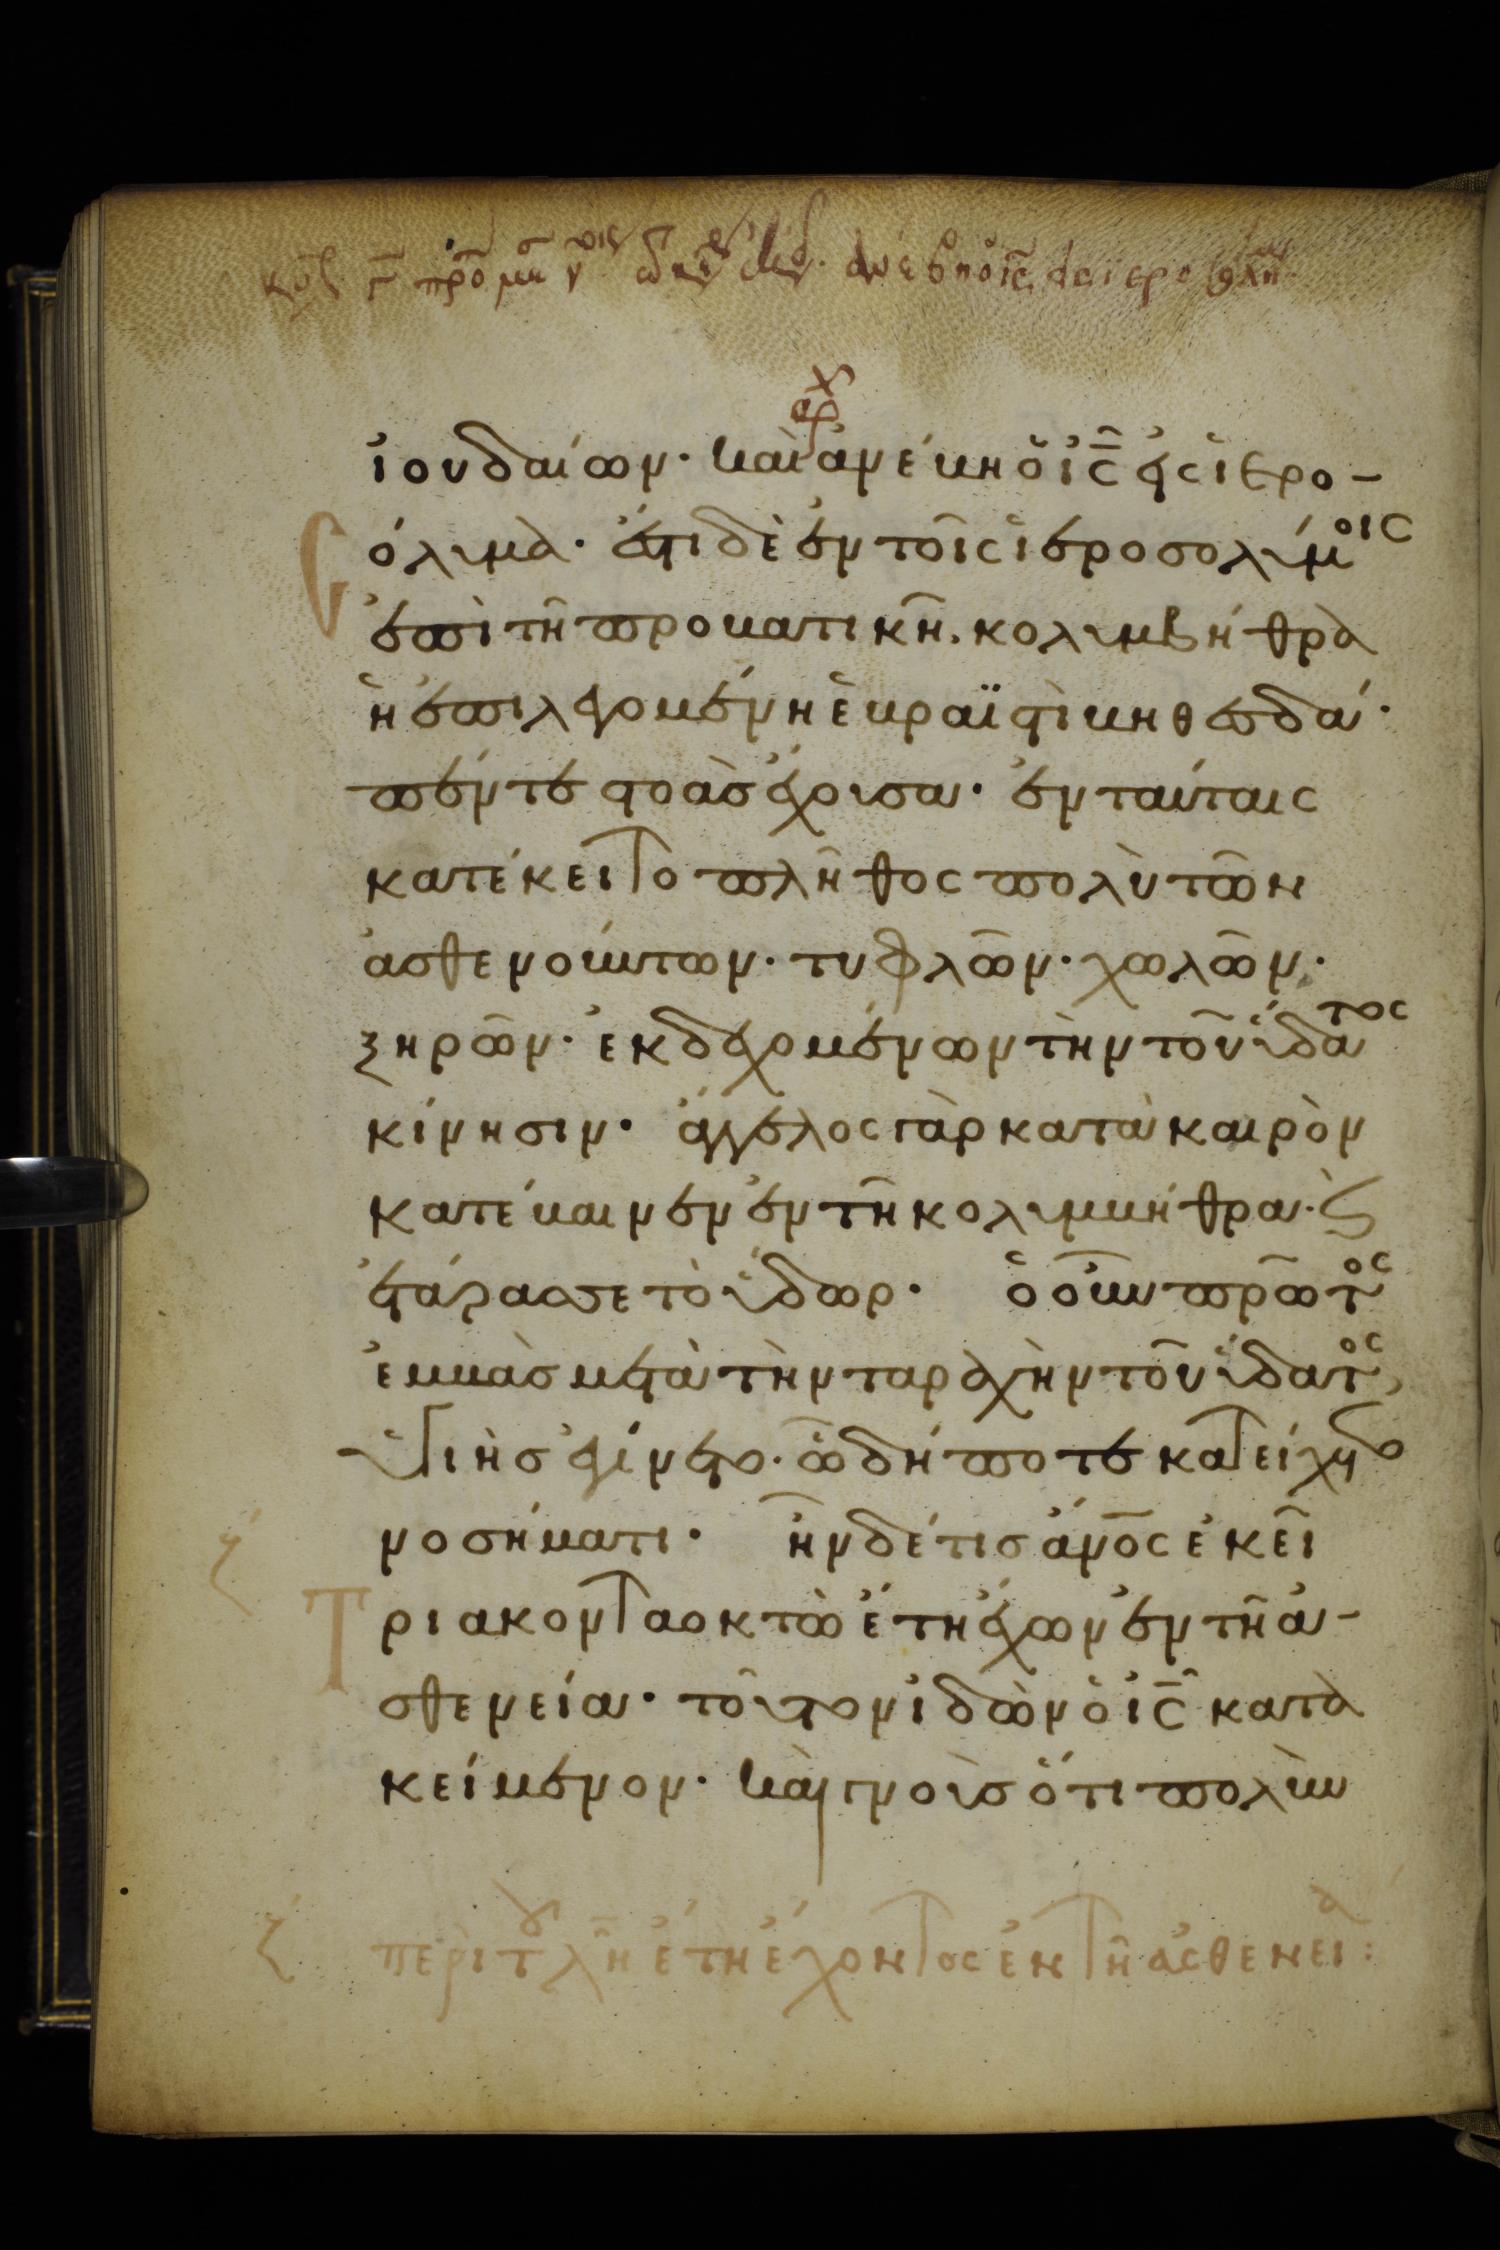 ἰουδαίων· καὶ ἀνέβη ὁ ἰς̅ εἰς ἱερο-
όλυμα· ἔστι δὲ ἐν τοῖς ἱεροσολύμοις
ἐπὶ τῆ προβατικῆ. κολυμβήθρα
ἡ ἐπιλεγομένη ἑβραϊστὶ βηθεσδά·
πέντε στοὰς ἔχουσα· ἐν ταύταις
κατέκειτο πλῆθος πολὺ τῶν
ἀσθενούντων· τυφλῶν· χωλῶν·
ξηρῶν· ἐκδεχομένων τὴν τοῦ ὕδατος
κίνησιν· ἄγγελος γὰρ κατὰ καιρὸν
κατέβαινεν ἐν τῆ κολυμβήθρα· ϗ
ἐτάρασσε τὸ ὕδωρ· ὁ οὖν πρῶτος
ἐμβὰς μετὰ τὴν ταραχὴν τοῦ ὕδατος,
ὑγιὴς ἐγίνετο· ὧ δήποτε κατείχετο
νοσήματι· ἦν δέ τις ἄνος̅ ἐκεῖ
Τριακονταοκτὼ ἔτη ἔχων ἐν τῆ ἀ-
σθενεία· τοῦτον ἰδὼν ὁ ἰς̅ κατα
κείμενον· καὶ γνοὺς ὅτι πολὺν
ζ περὶ τοῦ λη̅ ἔτη ἔχοντος ἐν τῆ ἀσθενεία: